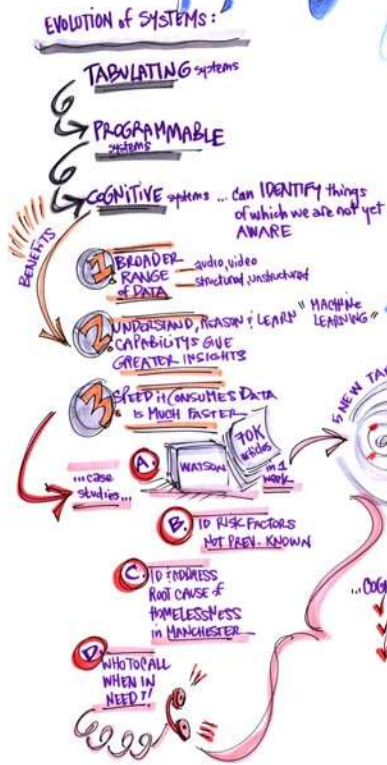 EVOLUTION of SYSTEMS:
TABULATING systems
PROGRAMMABLE
systems
COGNITIVE systems ... can IDENTIFY things
of which we are not yet
AWARE
BENEFITS
1 BROADER
RANGE
of DATA
audio, video
structured, unstructured
2 UNDERSTAND, REASON & LEARN "MACHINE
LEARNING"
CAPABILITYS GIVE
GREATER INSIGHTS
3 SPEED it CONSUMES DATA
is MUCH FASTER
...case
studies...
A. WATSON
70K
articles
in 1
week
5 NEW
B. ID RISK FACTORS
NOT PREV. KNOWN
C. ID & ADDRESS
ROOT CAUSE of
HOMELESSNESS
in MANCHESTER
D. WHO TO CALL
WHEN IN
NEED?!